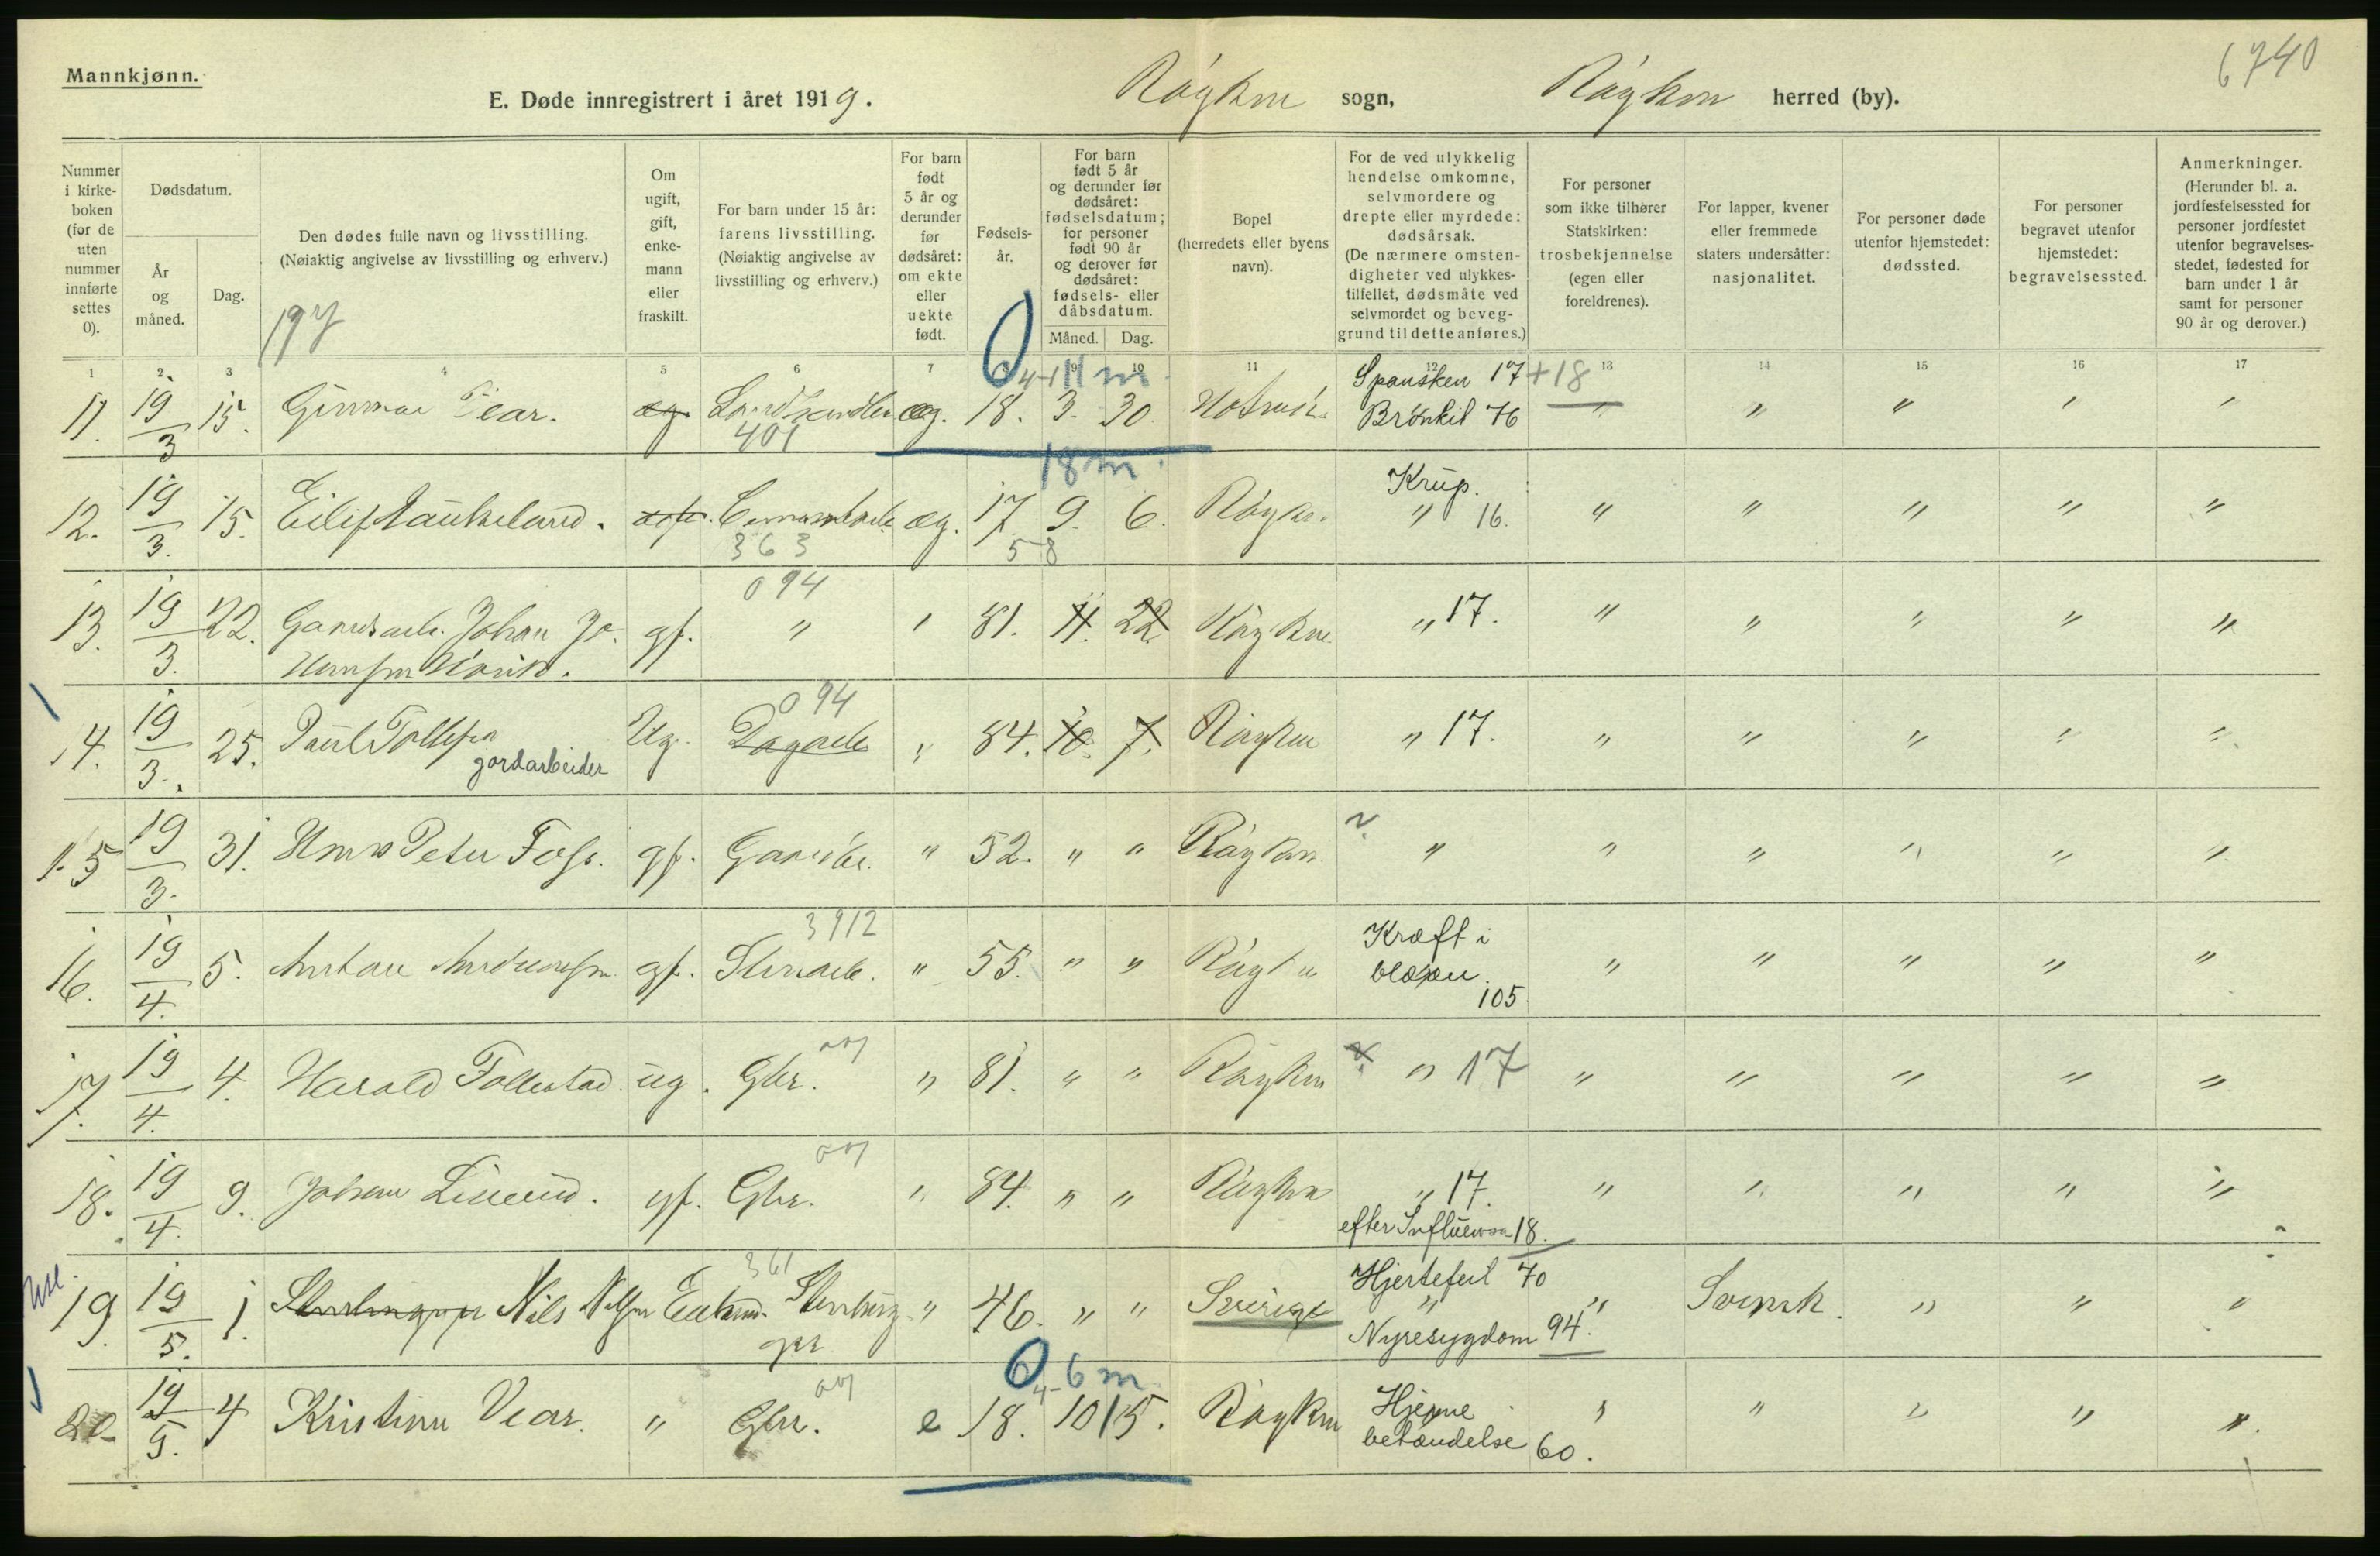 Mannkjønn.
6740
E. Døde innregistrert i året 1919. Røyken sogn, Røyken herred (by).
Nummer i kirkeboken (for de uten nummer innførte settes 0).
Dødsdatum.
År og måned.
Dag.
Den dødes fulle navn og livsstilling.
(Nøiaktig angivelse av livsstilling og erhverv.)
Om ugift, gift, enkemann eller fraskilt.
For barn under 15 år: farens livsstilling.
(Nøiaktig angivelse av livsstilling og erhverv.)
For barn født 5 år og derunder før dødsåret: om ekte eller uekte født.
Fødselsår.
For barn født 5 år og derunder før dødsåret: fødselsdatum; for personer født 90 år og derover før dødsåret: fødsels- eller dåbsdatum.
Måned. Dag.
Bopel
(herredets eller byens navn).
For de ved ulykkelig hendelse omkomne, selvmordere og drepte eller myrdede: dødsårsak.
(De nærmere omstendigheter ved ulykkestilfellet, dødsmåte ved selvmordet og beveggrund til dette anføres.)
For personer som ikke tilhører Statskirken: trosbekjennelse (egen eller foreldrenes).
For lapper, kvener eller fremmede staters undersåtter: nasjonalitet.
For personer døde utenfor hjemstedet: dødssted.
For personer begravet utenfor hjemstedet: begravelsessted.
Anmerkninger.
(Herunder bl. a. jordfestelsessted for personer jordfestet utenfor begravelsesstedet, fødested for barn under 1 år samt for personer 90 år og derover.)
197
1 2 3 4 5 6 7 9 10 11 12 13 14 15 16 17
0 4-11 m
11. 19/3 15. Gunnar Vear. æg. Landhandler æg. 18. 3. 30. Spansken 17+18 " " " " "
401 Brónkit 76
18 m
12. 19/3. 15. Eilif Haukeland. æg. 17. 9. 6. Røyken. Krup. " 16. " " " " "
363 58
094
13. 19/3. 22. Gaardarb. Johan Jo. gf. " " 81. 11. 22. Røyken " 17. " " " " "
Hansen
094
14. 19/3. 25. Paul Tollefsen Ug. Dagarb " 84. 10. 7. Røyken " 17. " " " " "
gardarbeider
15 19/3. 31. Hans Peter Foss. gf. Gaardbr. " 52. " " Røyken ? " " " " " "
3912
16. 19/4. 5. Anton Andreassen gf. Stenarb. " 55. " " Røyken Kræft i blæren. 105. " " " " "
007
17. 19/4. 4. Harald Follestad ug. Gbr. " 81. " " Røyken ? " 17 " " " " "
007
18. 19/4. 9. Johan Linund. gf. Gbr. " 84. " " Røyken " 17. " " " " "
efter Influensa 18.
361
19. 19/5. 1. Nils Nilsen " 46. " " Sverige Hjertefeil 70 " Svensk. " " "
Nyresygdom 94.
0 4-6 m
007
20. 19/5. 4 Kristian Vear. " Gbr. e 18. 10 15. Røyken Hjernebetændelse 60. " " " " "